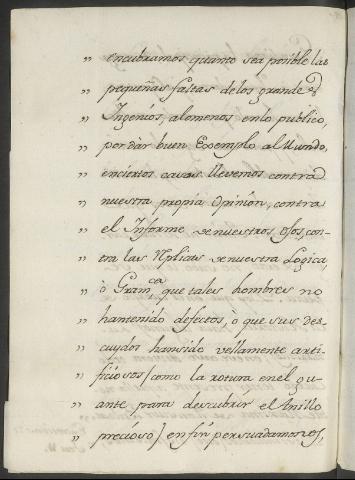 „ encubramos quanto sea posible las
„ pequeñas faltas de los grandes
„ Ingenios, alomenos enlo publico,
„ por dàr buen Exemplo al Mundo,
„ enciertos casos llevemos contra
„ nuestra propia Opinion, contra
„ el Informe de nuestros Ojos, con-
„ tra las Replicas de nuestra Logica,
„ ò Gram.ca que tales hombres no
„ hantenido defectos, ò que sus des-
„ cuydos hansido vellamente arti-
„ ficiosos / como la rotura enèl gu-
„ ante para descubrir el Anillo
„ precioso / en fin persuadamonos,